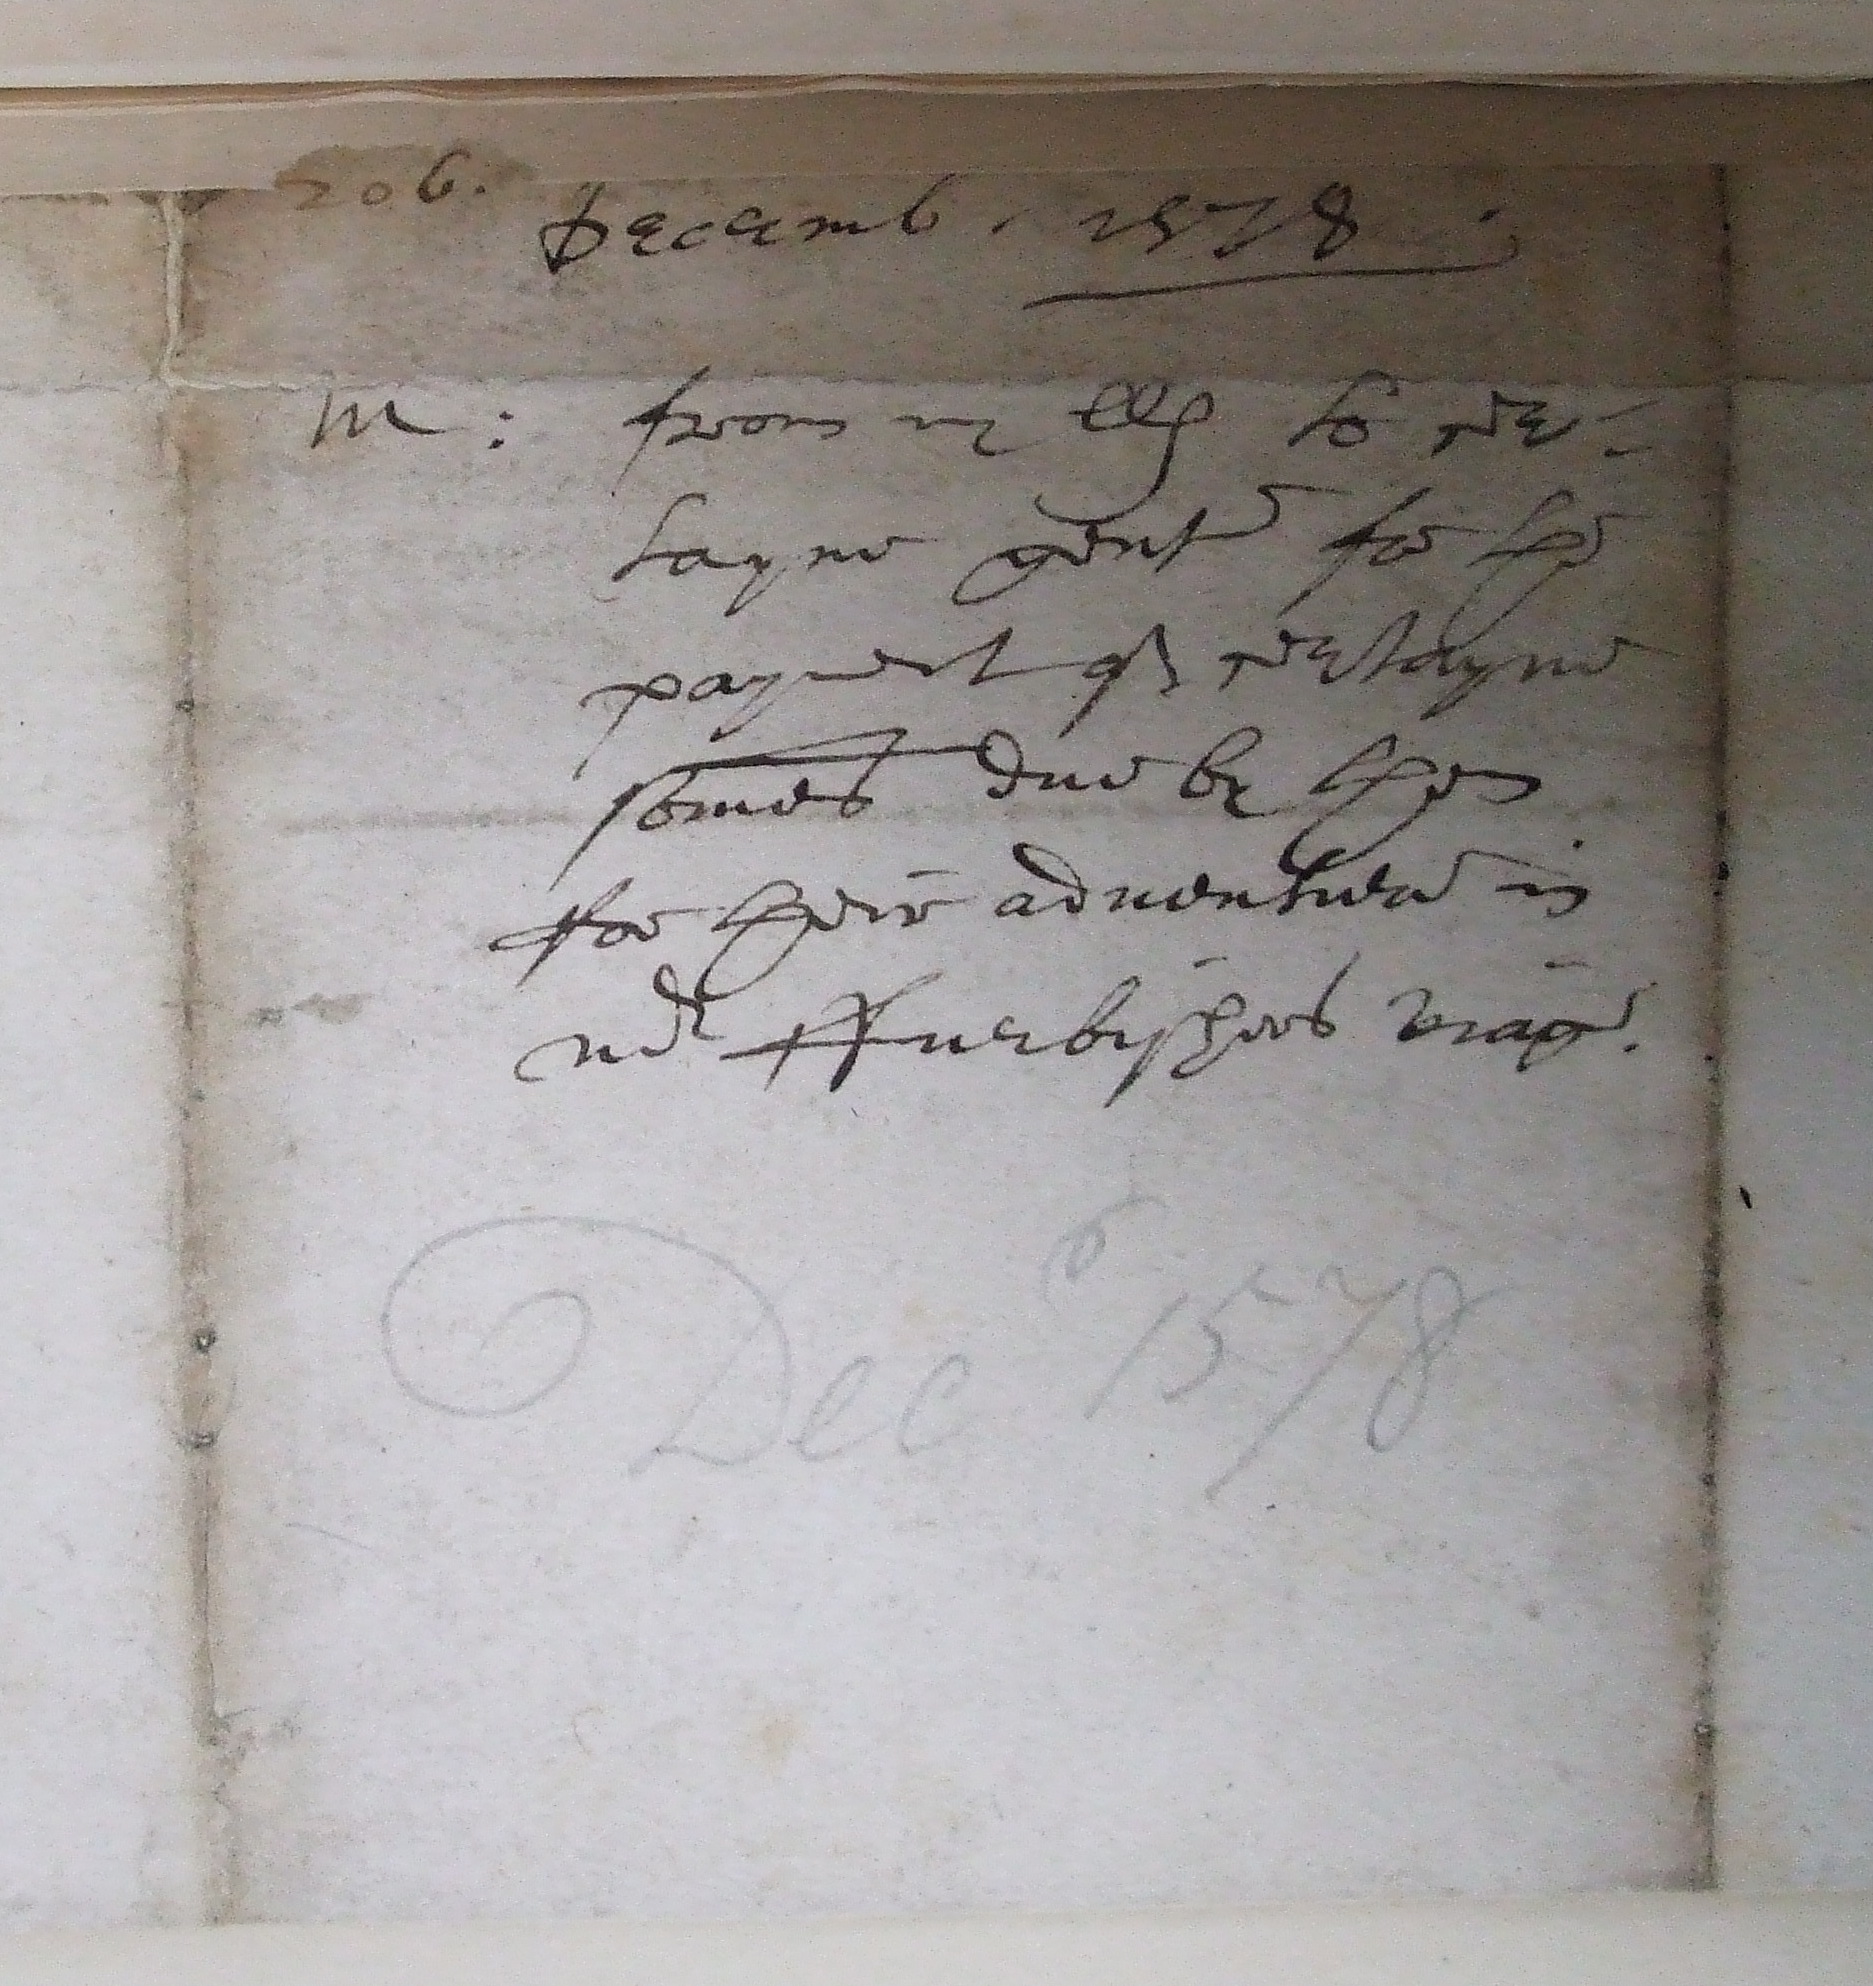 206.
Decemb. 1578.
M: from ye LLs to cer-
tayne gent for the
payment of certayne
somes due by them
for their adventure in
Mr Furbyshers viage.
Dec 1578